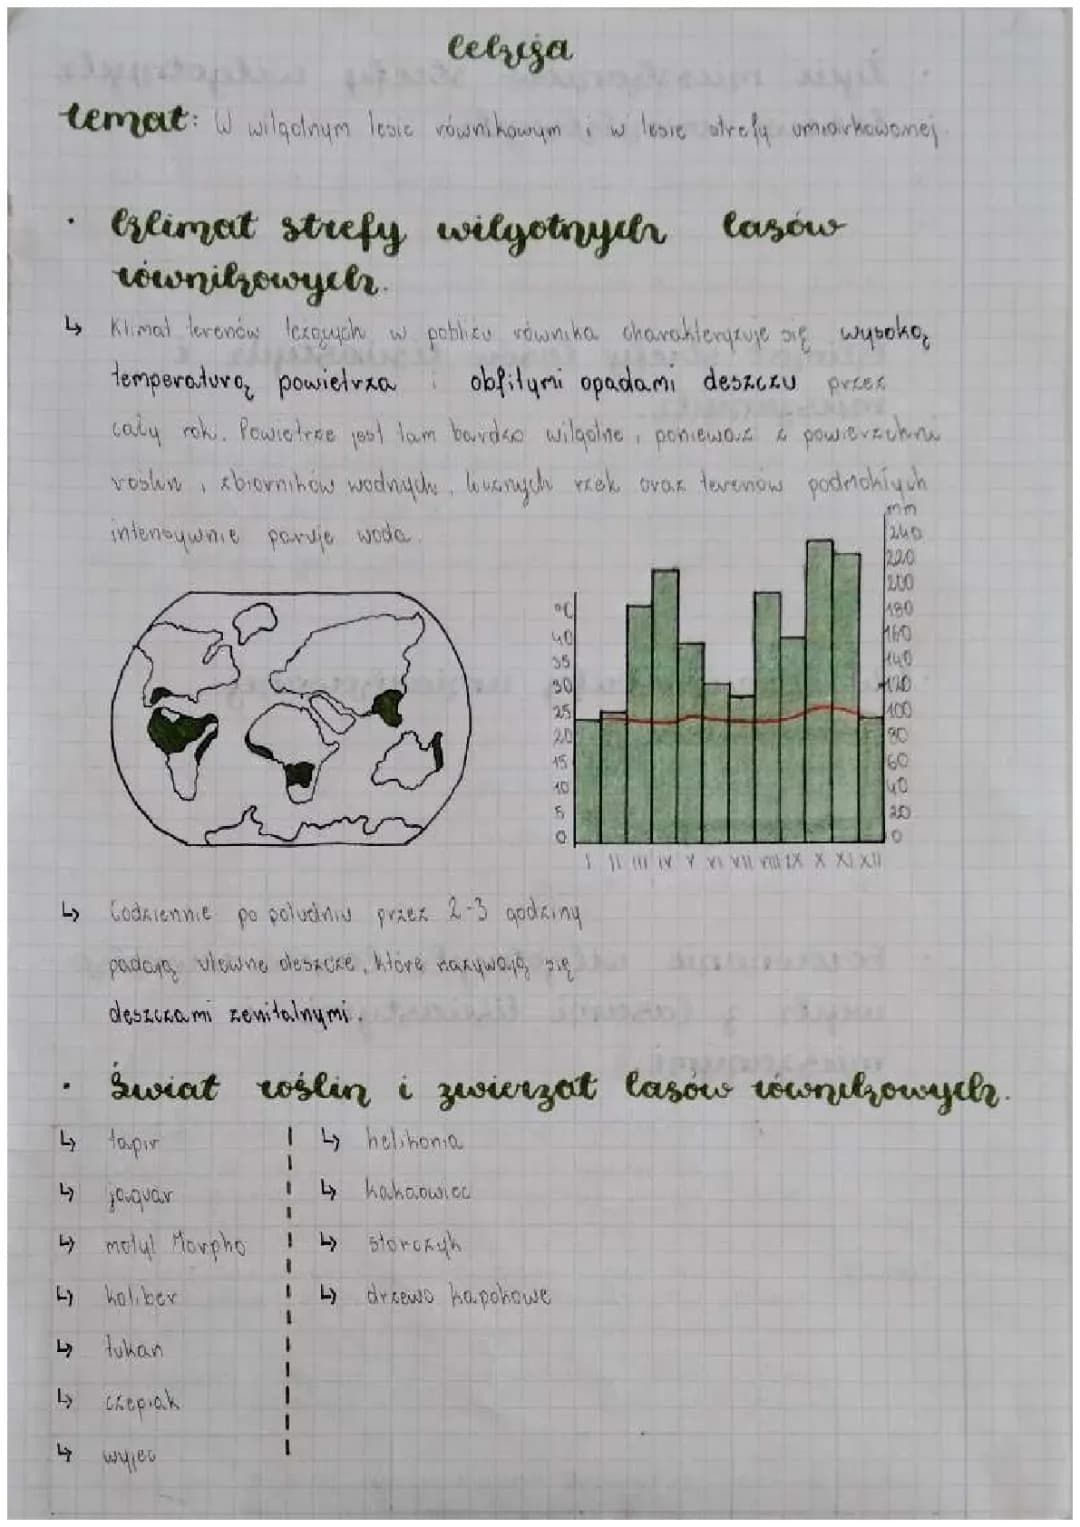 Lekcja
temat: W wilgotnym lesie równikowym i w lesie strefy umiarkowanej
· Klimat strefy wilgotnych lasów
równikowych.
↳ Klimat terenów leżących w pobliżu równika charakteryzuje się wysoką
temperaturą powietrza i obfitymi opadami deszczu przez
cały rok. Powietrze jest tam bardzo wilgotne, ponieważ z powierzchni
roślin, zbiorników wodnych, licznych rzek oraz terenów podmokłych
intensywnie paruje woda.
mm
240
220
200
180
160
140
120
100
80
60
40
20
0
°C
40
35
30
25
20
15
10
5
0
I II III IV V VI VII VIII IX X XI XII
↳ Codziennie po południu przez 2-3 godziny
padają ulewne deszcze, które nazywają się
deszczami zenitalnymi.
· Świat roślin i zwierząt lasów równikowych.
↳ tapir
↳ jaguar
↳ motyl Morpho
↳ koliber
↳ tukan
↳ czepiak
↳ wyjec
↳ helikonia
↳ kakaowiec
↳ storczyk
↳ drzewo kapokowe